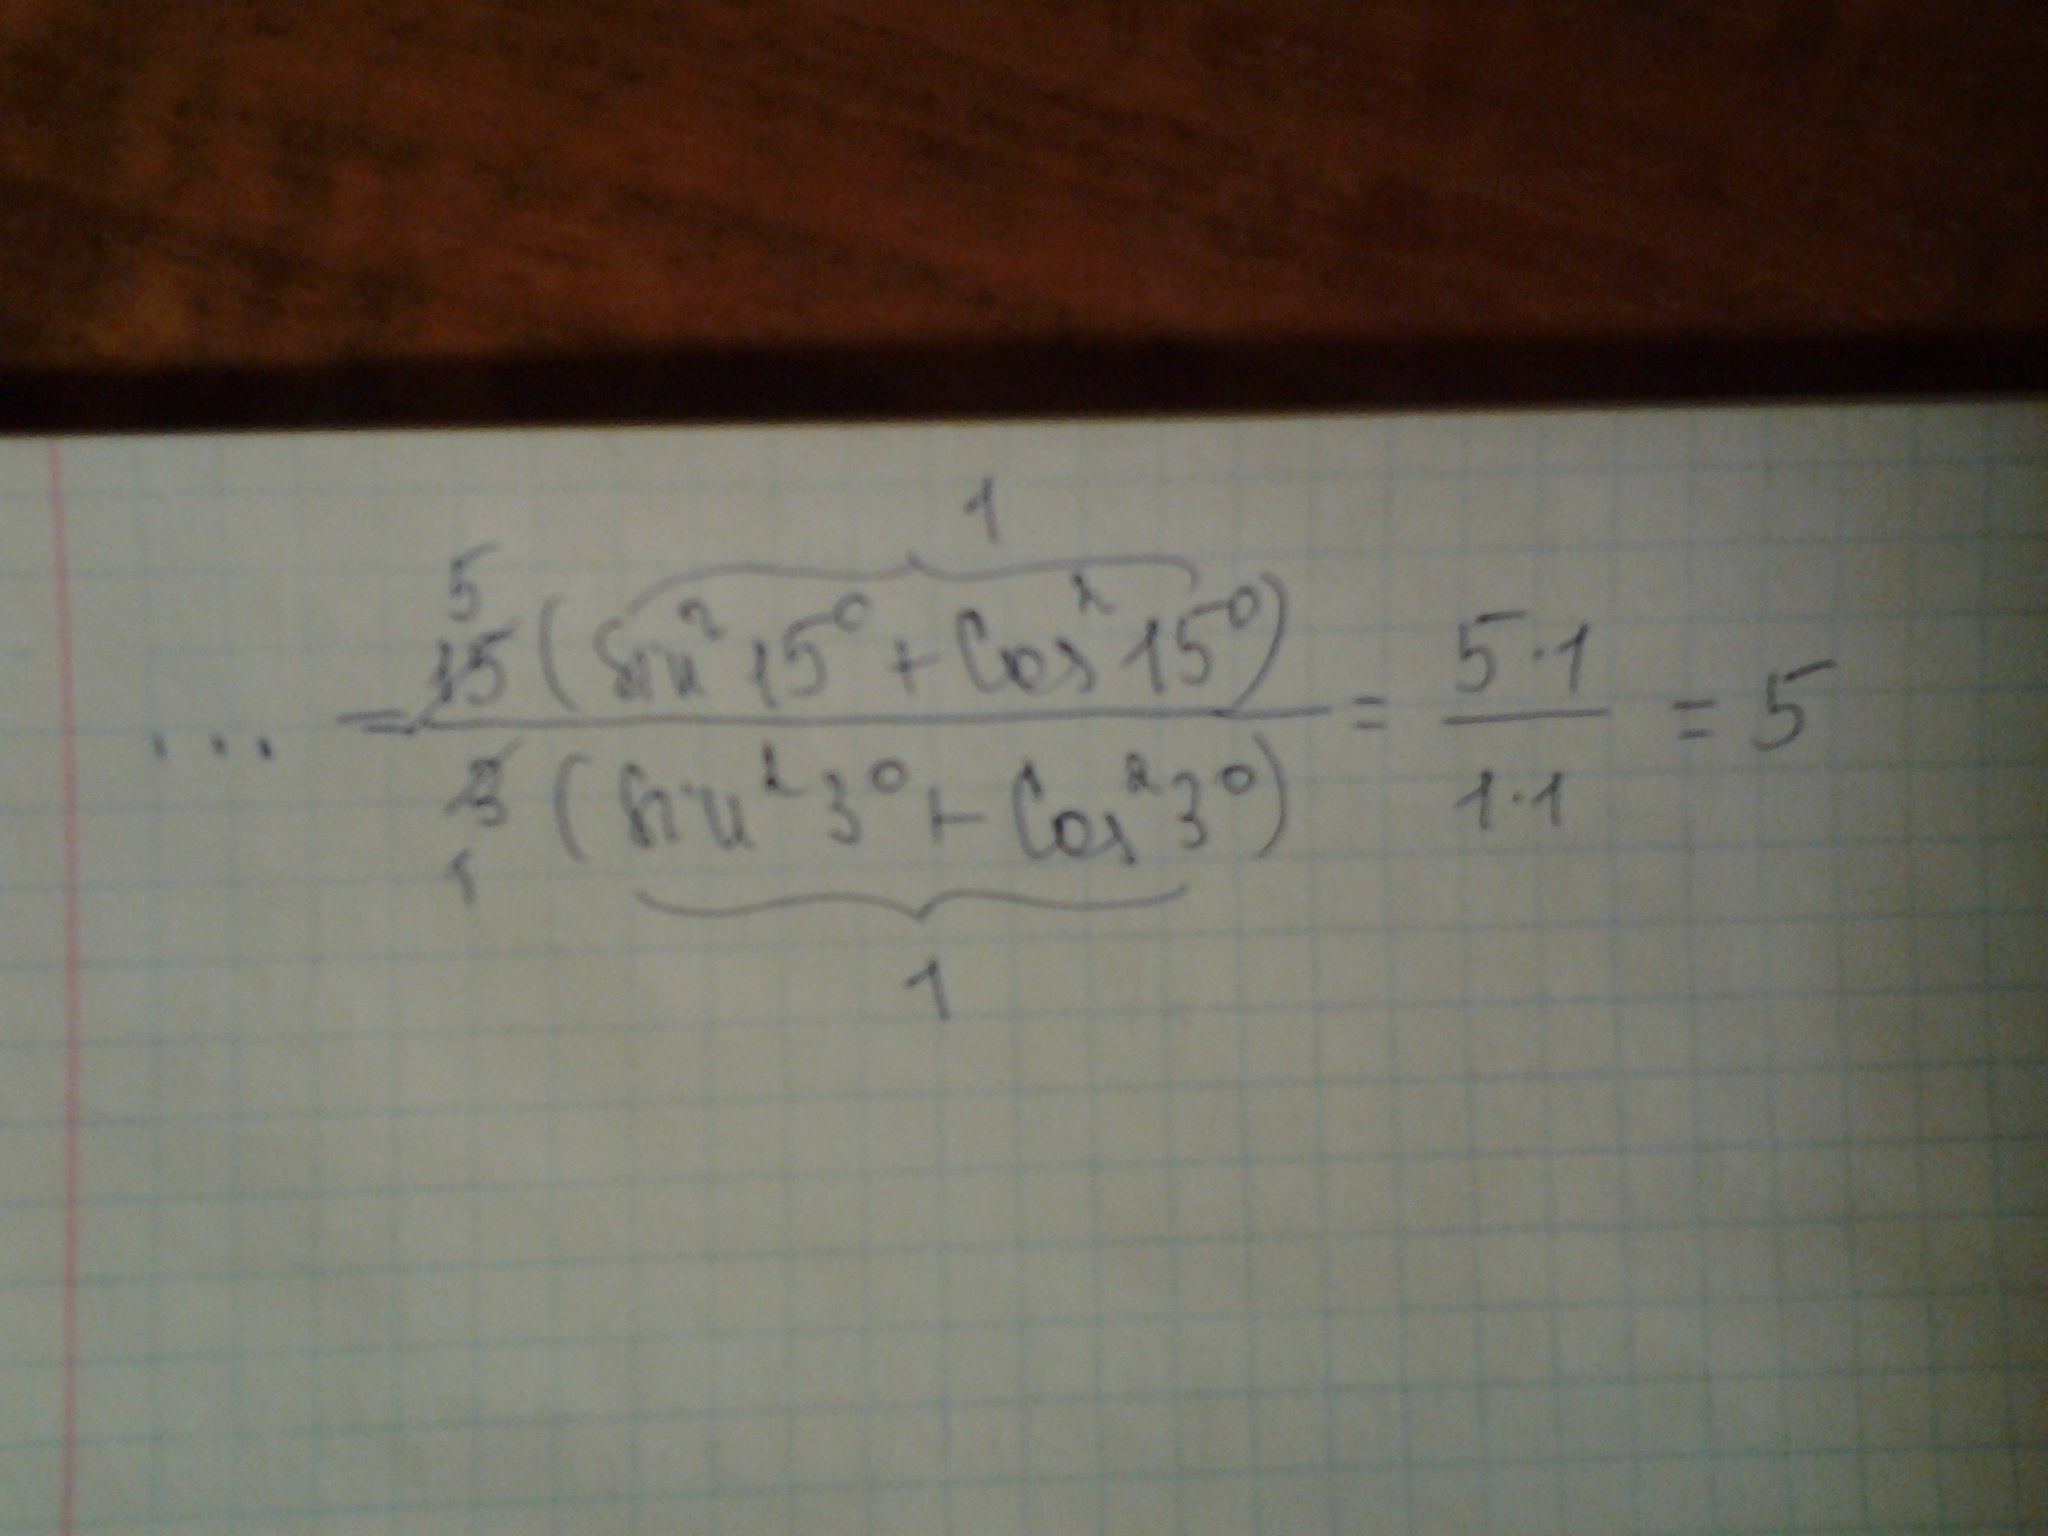 1
5
... = 15 (sin² 15° + Cos² 15°) / 3 (sin² 3° + Cos² 3°) = 5·1 / 1·1 = 5
1
1